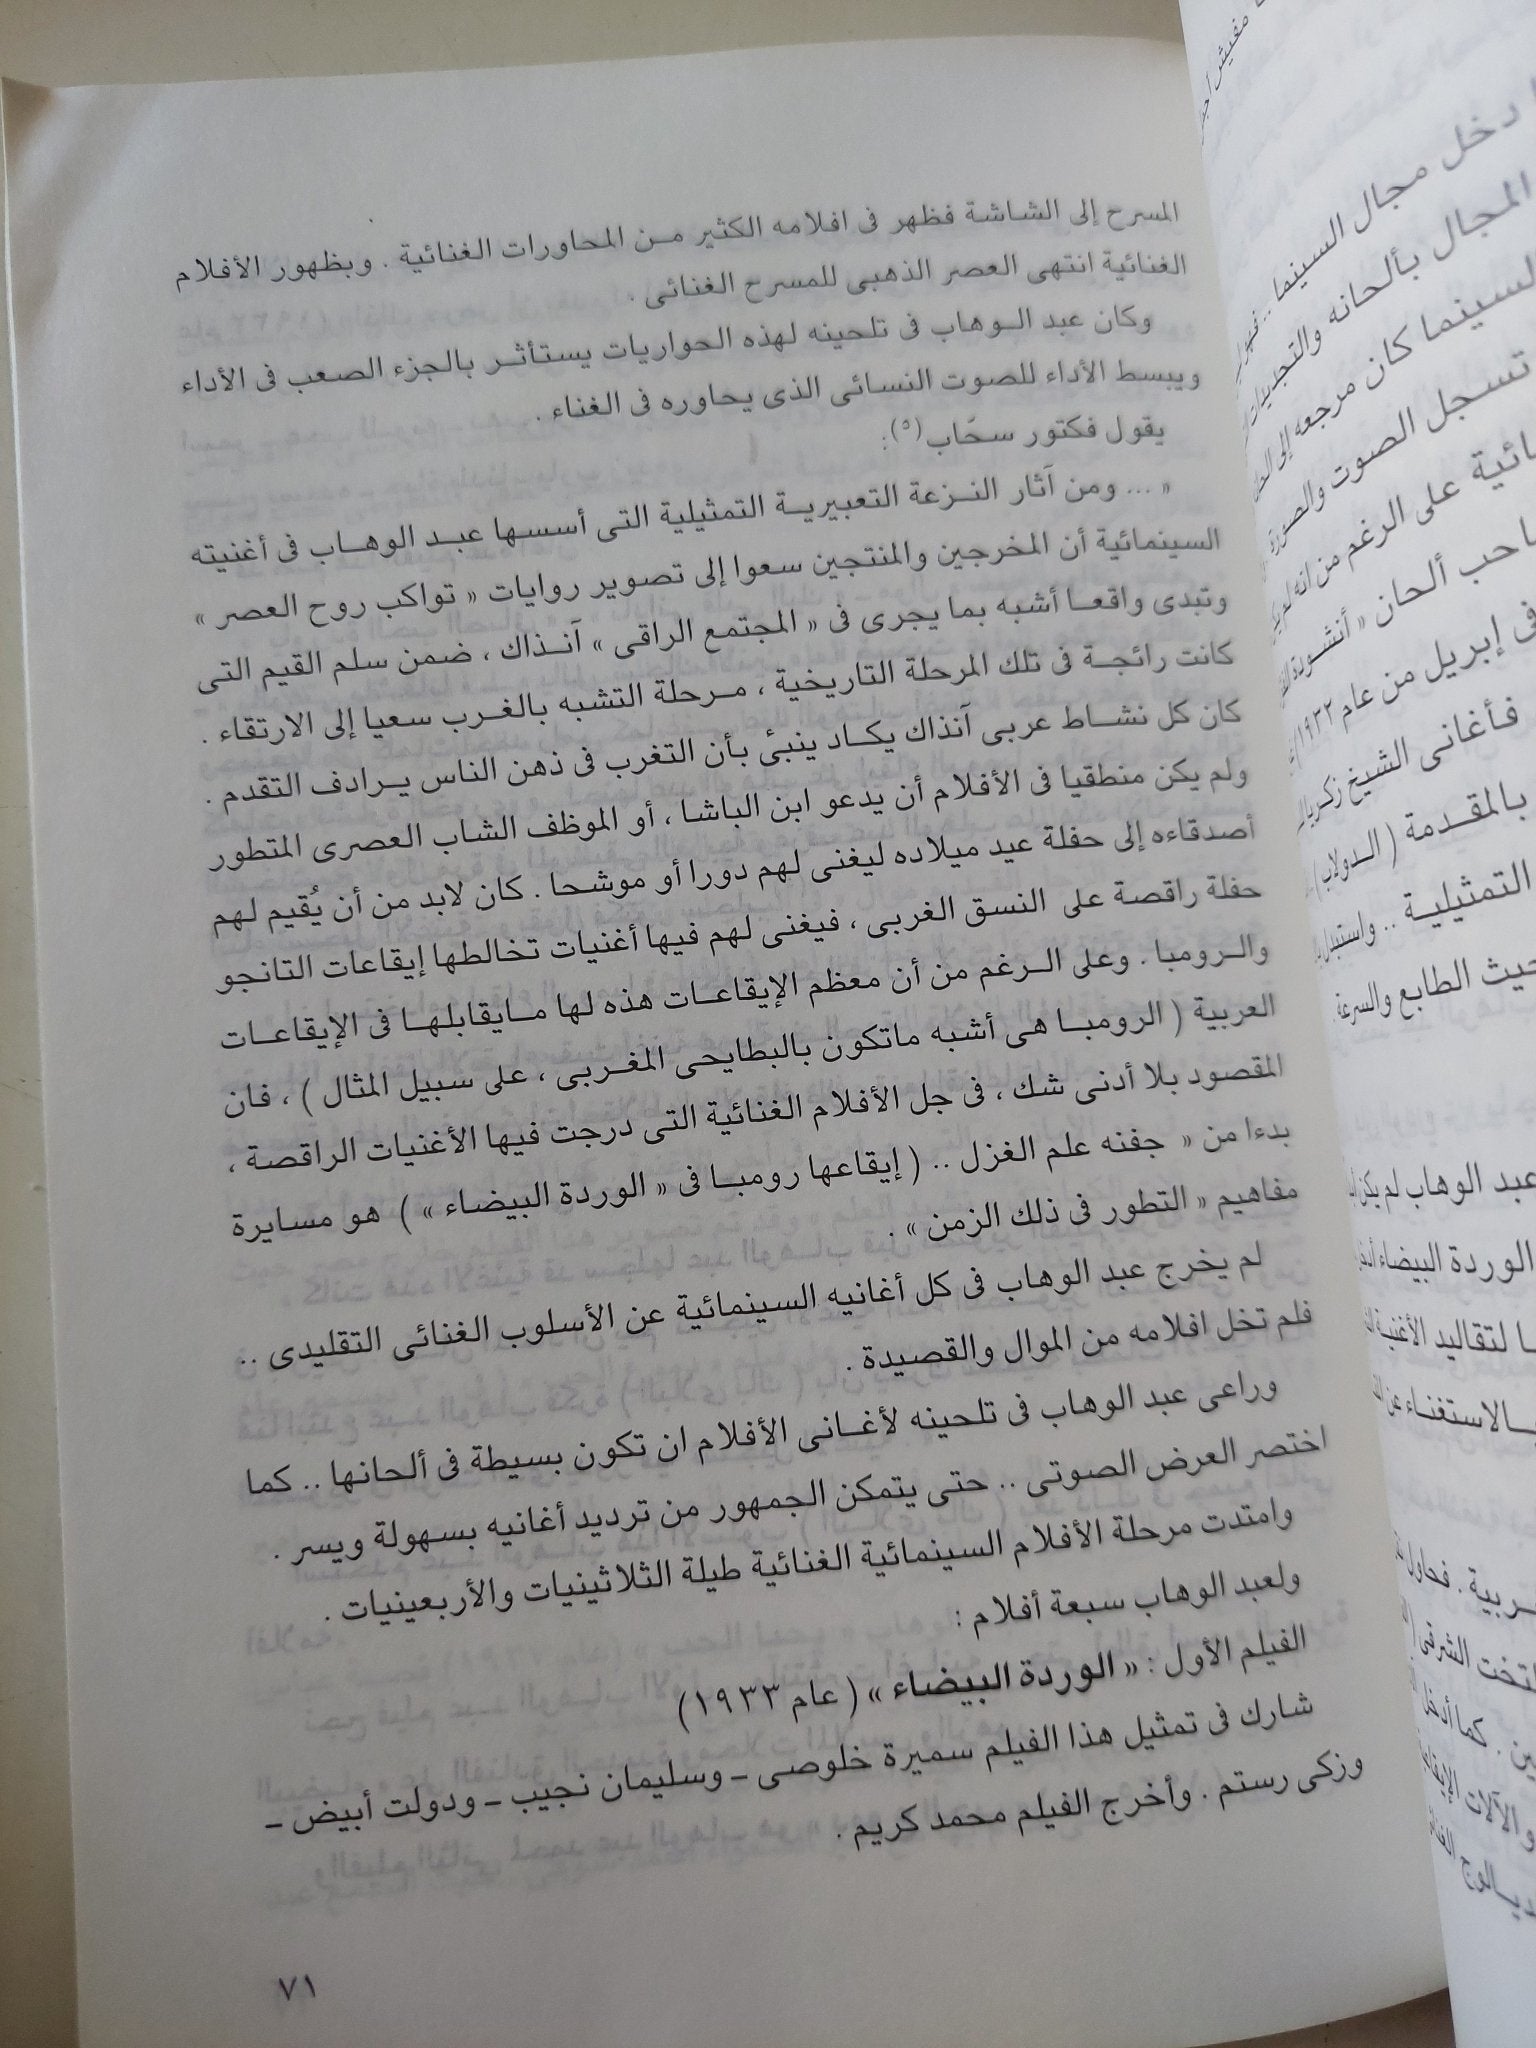 المسرح إلى الشاشة فظهر فى افلامه الكثير من المحاورات الغنائية . وبظهور الأفلام
الغنائية انتهى العصر الذهبى للمسرح الغنائى .
وكان عبد الوهاب فى تلحينه لهذه الحواريات يستأثر بالجزء الصعب فى الأداء
ويبسط الأداء للصوت النسائى الذى يحاوره فى الغناء .
يقول فكتور سحّاب(٥):
« ... ومن آثار النزعة التعبيرية التمثيلية التى أسسها عبد الوهاب فى أغنيته
السينمائية أن المخرجين والمنتجين سعوا إلى تصوير روايات « تواكب روح العصر »
وتبدى واقعا أشبه بما يجرى فى « المجتمع الراقى » آنذاك ، ضمن سلم القيم التى
كانت رائجة فى تلك المرحلة التاريخية ، مرحلة التشبه بالغرب سعيا إلى الارتقاء .
كان كل نشاط عربى آنذاك يكاد ينبئ بأن التغرب فى ذهن الناس يرادف التقدم .
ولم يكن منطقيا فى الأفلام أن يدعو ابن الباشا ، أو الموظف الشاب العصرى المتطور
أصدقاءه إلى حفلة عيد ميلاده ليغنى لهم دورا أو موشحا . كان لابد من أن يُقيم لهم
حفلة راقصة على النسق الغربى ، فيغنى لهم فيها أغنيات تخالطها إيقاعات التانجو
والرومبا . وعلى الرغم من أن معظم الإيقاعات هذه لها مايقابلها فى الإيقاعات
العربية ( الرومبا هى أشبه ماتكون بالبطايحى المغربى ، على سبيل المثال ) ، فان
المقصود بلا أدنى شك ، فى جل الأفلام الغنائية التى درجت فيها الأغنيات الراقصة ،
بدءا من « جفنه علم الغزل .. ( إيقاعها رومبا فى « الوردة البيضاء » ) هو مسايرة
مفاهيم « التطور فى ذلك الزمن » .
لم يخرج عبد الوهاب فى كل أغانيه السينمائية عن الأسلوب الغنائى التقليدى ..
فلم تخل افلامه من الموال والقصيدة .
وراعى عبد الوهاب فى تلحينه لأغانى الأفلام ان تكون بسيطة فى ألحانها .. كما
اختصر العرض الصوتى .. حتى يتمكن الجمهور من ترديد أغانيه بسهولة ويسر .
وامتدت مرحلة الأفلام السينمائية الغنائية طيلة الثلاثينيات والأربعينيات .
ولعبد الوهاب سبعة أفلام :
الفيلم الأول : « الوردة البيضاء » ( عام ١٩٣٣)
شارك فى تمثيل هذا الفيلم سميرة خلوصى ـ وسليمان نجيب ـ ودولت أبيض ـ
وزكى رستم . وأخرج الفيلم محمد كريم .
٧١
دخل مجال السينما ..
المجال بألحانه والتجديدات
السينما كان مرجعه إلى
تسجل الصوت والصورة
على الرغم من انه
ألحان « أنشودة
فى إبريل من عام ١٩٣٢)
فأغانى الشيخ زكريا
بالمقدمة ( الدولاب )
التمثيلية .. واستبدل
حيث الطابع والسرعة
عبد الوهاب لم يكن
الوردة البيضاء
لتقاليد الأغنية
بالاستغناء عن
فحاول
التخت الشرقى
كما أدخل
والآلات